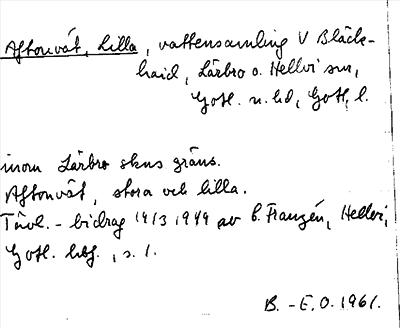 Aftonvät, Lilla, vattensamling V Bläck-
haid, Lärbro o. Hellvi snr,
Gotl. n. hd, Gotl. l.
inom Lärbro skns gräns.
Aftonvät, stora och lilla.
Tävl.-bidrag 14/3 1949 av E. Franzén, Hellvi,
Gotl. hbf., s. 1.
B.-E.O. 1961.